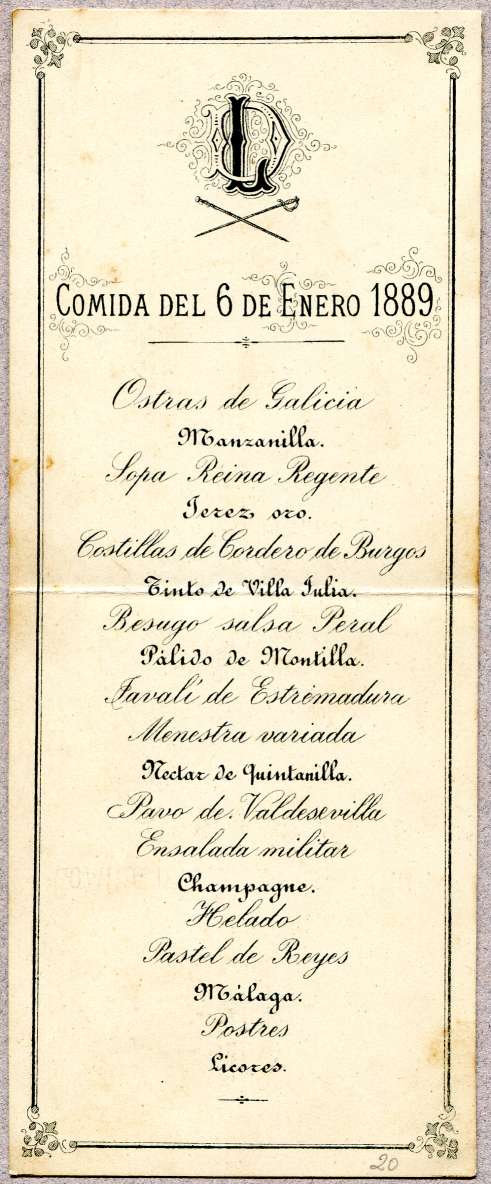 LD
COMIDA DEL 6 DE ENERO 1889
Ostras de Galicia
Manzanilla.
Sopa Reina Regente
Jerez oro.
Costillas de Cordero de Burgos
Tinto de Villa Julia.
Besugo salsa Peral
Pálido de Montilla.
Javalí de Estremadura
Menestra variada
Nectar de Quintanilla.
Pavo de Valdesevilla
Ensalada militar
Champagne.
Helado
Pastel de Reyes
Málaga.
Postres
Licores.
20